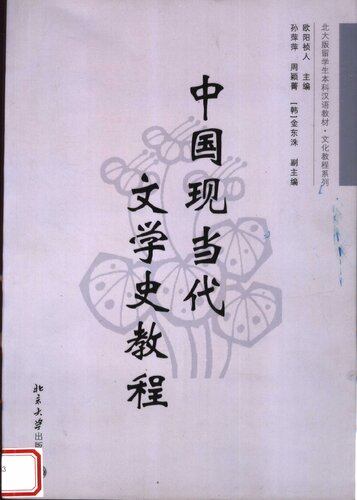 北大版留学生本科汉语教材·文化教程系列
欧阳祯人 主编
孙萍萍 周颖菁 [韩]金东洙 副主编
中国现当代
文学史教程
北京大学出版
3